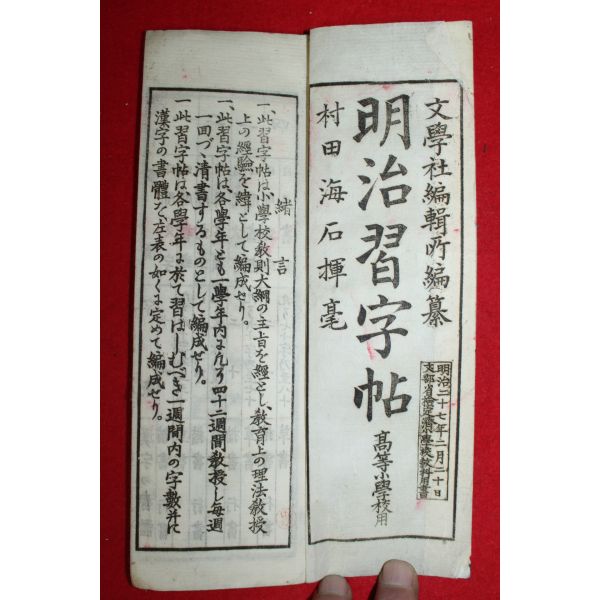 文學社編輯所編纂
明治習字帖
高等小學校用
村田海石揮毫
明治二十七年二月二十日
文部省檢定濟小學校教科用書
緒言
一、此習字帖は小學校教則大綱の主旨を經とし、教育上の理法教授
上の經驗を緯として編成せり。
一、此習字帖は、各學年とも一學年内に凡そ四十二週間教授し毎週
一回づゝ清書するものとして編成せり。
一此習字帖は各學年に於て習はしむべき一週間内の字數并に
漢字の書體を、左表の如くに定めて編成せり。